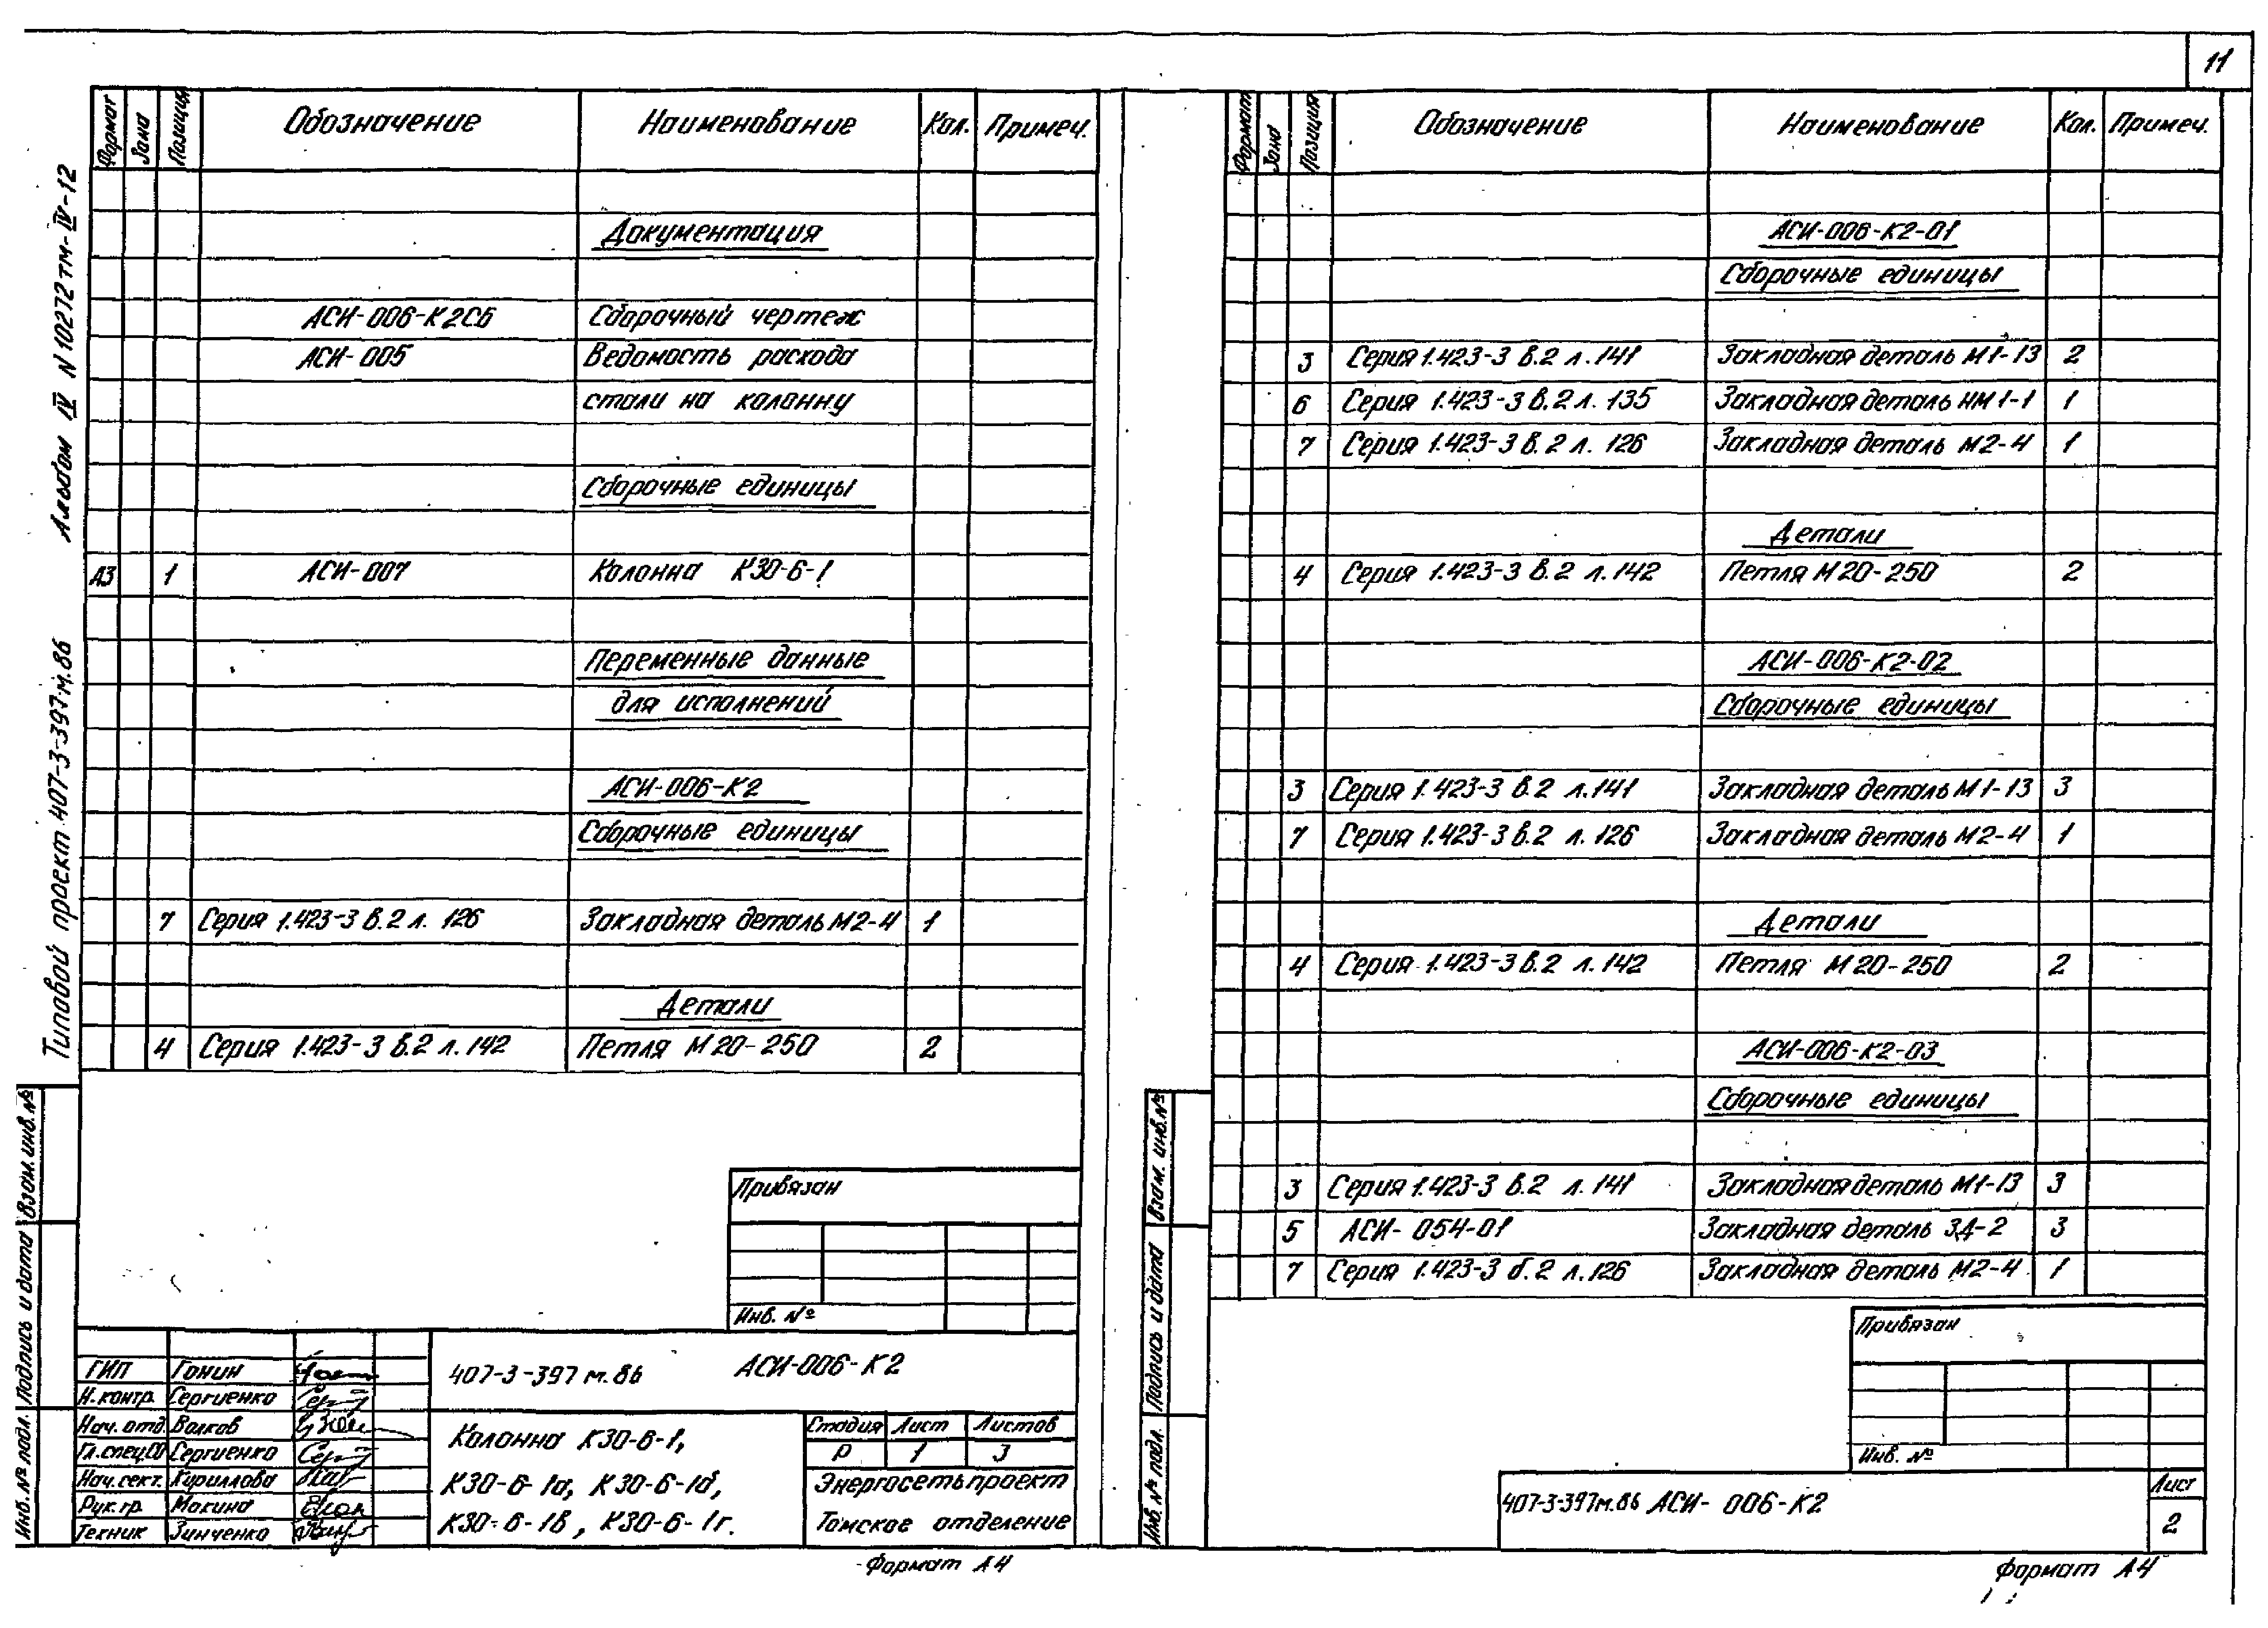 11
Типовой проект 407-3-397м.86 Альбом IV N 10272тм-IV-12
Формат Зона Позиция Обозначение Наименование Кол. Примеч.
Документация
АСИ-006-К2СБ Сборочный чертеж
АСИ-005 Ведомость расхода
стали на колонну
Сборочные единицы
А3 1 АСИ-007 Колонна К30-6-1
Переменные данные
для исполнений
АСИ-006-К2
Сборочные единицы
7 Серия 1.423-3 в.2 л. 126 Закладная деталь М2-4 1
Детали
4 Серия 1.423-3 в.2 л.142 Петля М20-250 2
Привязан
Инв. №
Взам. инв. №
Подпись и дата
Инв. № подл.
ГИП Гонин
Н.контр. Сергиенко
Нач. отд. Волков
Гл.спец.СО Сергиенко
Нач. сект. Кириллова
Рук. гр. Мокина
Техник Зинченко
407-3-397м.86 АСИ-006-К2
Колонна К30-6-1,
К30-6-1а, К30-6-1б,
К30-6-1в, К30-6-1г.
Стадия Лист Листов
Р 1 3
Энергосетьпроект
Томское отделение
Формат А4
Формат Зона Позиция Обозначение Наименование Кол. Примеч.
АСИ-006-К2-01
Сборочные единицы
3 Серия 1.423-3 в.2 л.141 Закладная деталь М1-13 2
6 Серия 1.423-3 в.2 л. 135 Закладная деталь НМ1-1 1
7 Серия 1.423-3 в.2 л. 126 Закладная деталь М2-4 1
Детали
4 Серия 1.423-3 в.2 л.142 Петля М20-250 2
АСИ-006-К2-02
Сборочные единицы
3 Серия 1.423-3 в.2 л.141 Закладная деталь М1-13 3
7 Серия 1.423-3 в.2 л.126 Закладная деталь М2-4 1
Детали
4 Серия 1.423-3 в.2 л.142 Петля М20-250 2
АСИ-006-К2-03
Сборочные единицы
3 Серия 1.423-3 в.2 л.141 Закладная деталь М1-13 3
5 АСИ-054-01 Закладная деталь ЗД-2 3
7 Серия 1.423-3 б.2 л.126 Закладная деталь М2-4 1
Привязан
Инв. №
Взам. инв. №
Подпись и дата
Инв. № подл.
407-3-397м.86 АСИ-006-К2
Лист
2
Формат А4